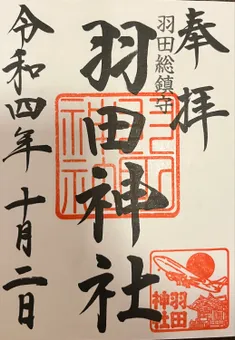 奉拝
羽田総鎮守
羽田神社
羽田神社
羽田神社
令和四年十月二日